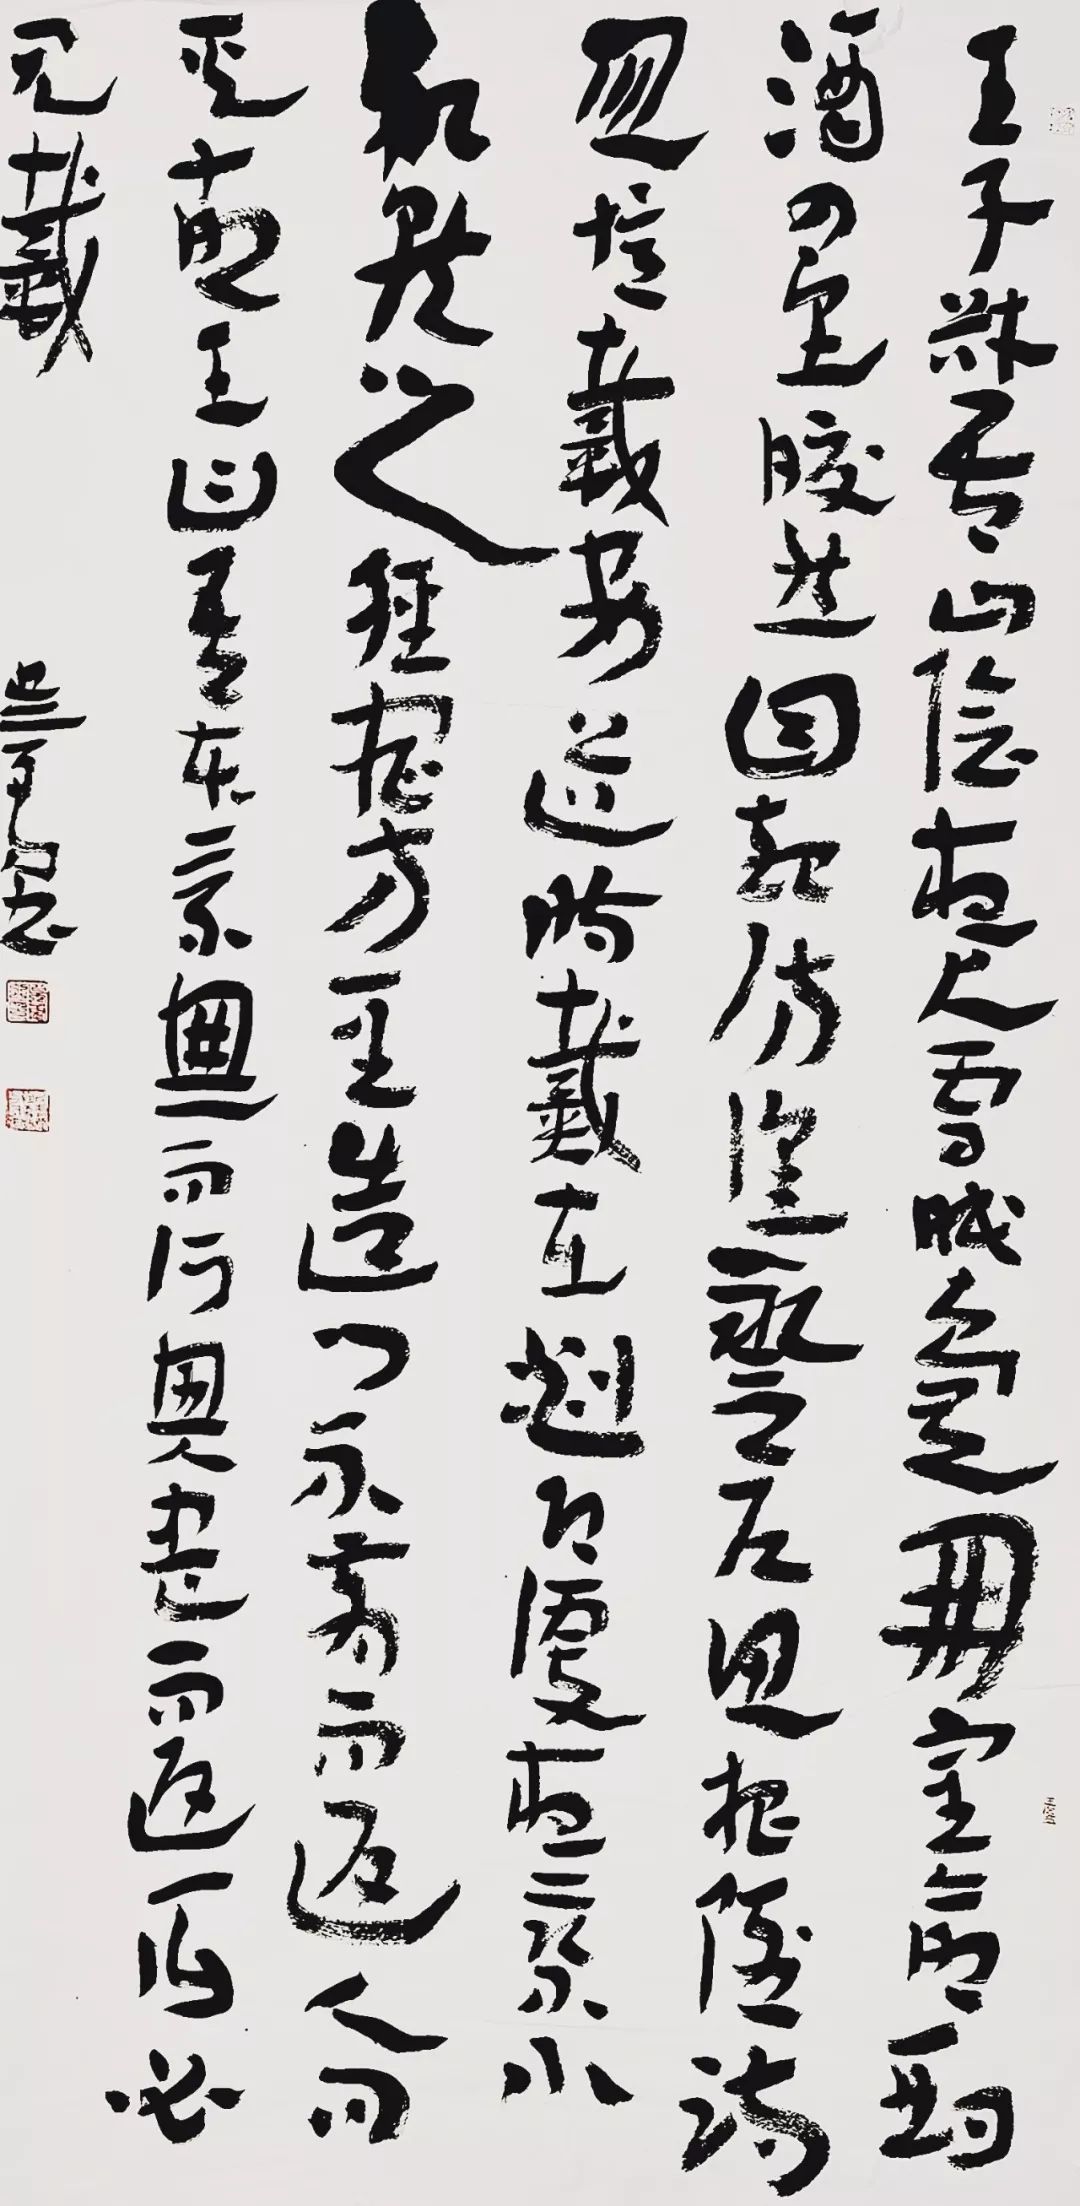 王子猷居山阴夜大雪眠觉开室命酌
酒四望皎然因起彷徨咏左思招隐诗
忽忆戴安道时戴在剡即便夜乘小
船就之经宿方至造门不前而返人问
其故王曰吾本乘兴而行兴尽而返何必
见戴